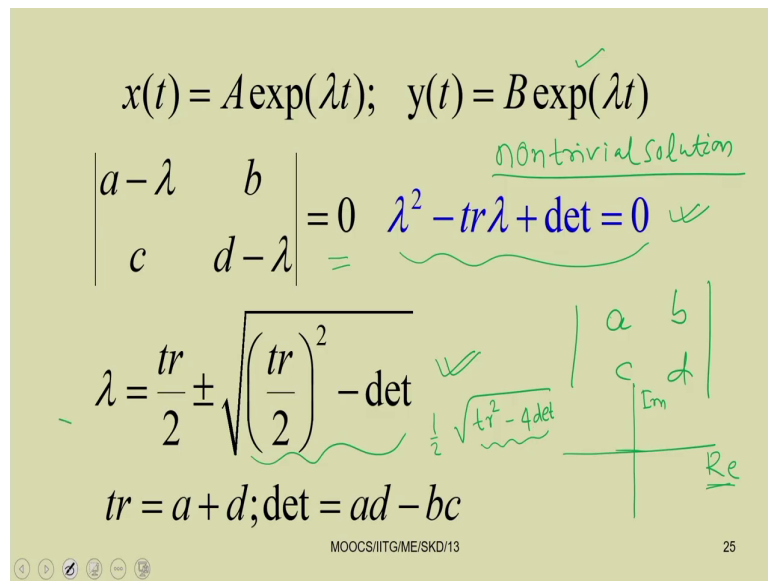 x(t) = A exp(λt); y(t) = B exp(λt)
nontrivial solution
|a − λ b|
|c d − λ| = 0 λ² − trλ + det = 0
|a b|
|c d|
λ = tr/2 ± √((tr/2)² − det)
1/2 √(tr² − 4det)
Im
Re
tr = a + d; det = ad − bc
MOOCS/IITG/ME/SKD/13 25